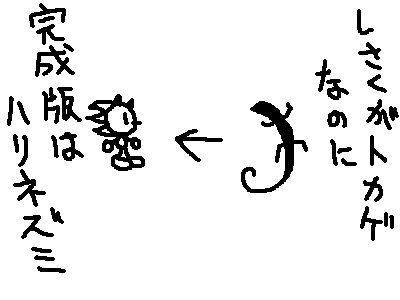 しさくがトカゲ
なのに
完成版は
ハリネズミ